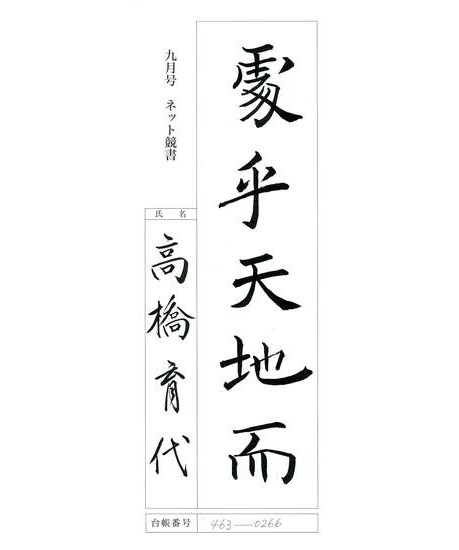 處乎天地而
九月号 ネット競書
氏名
高橋育代
台帳番号 463—0266